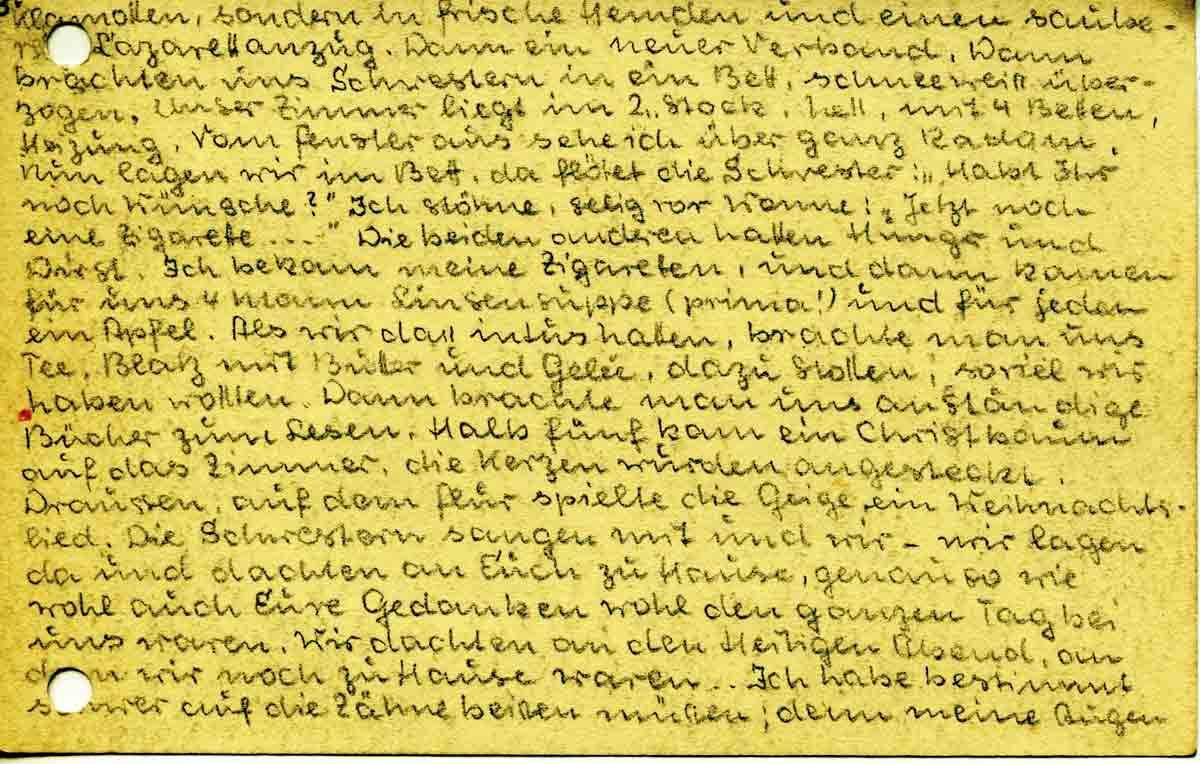 klamotten, sondern in frische Hemden und einen saube-
Lazarettanzug. Dann ein neuer Verband. Dann
brachten uns Schwestern in ein Bett, schneeweiß über-
zogen. Unser Zimmer liegt im 2. Stock, hell, mit 4 Betten,
Heizung. Vom Fenster aus sehe ich über ganz Radom.
Nun lagen wir im Bett, da flötet die Schwester: „Habt Ihr
noch Wünsche?" Ich stöhne, selig vor Wonne: „Jetzt noch
eine Zigarete ..." Die beiden anderen hatten Hunger und
Durst. Ich bekam meine Zigareten, und dann kamen
für uns 4 Mann Linsensuppe (prima!) und für jeden
ein Apfel. Als wir daß intus hatten, brachte man uns
Tee, Blatz mit Butter und Gelée, dazu Stollen, soviel wir
haben wollten. Dann brachte man uns anständige
Bücher zum Lesen. Halb fünf kam ein Christbaum
auf das Zimmer, die Kerzen wurden angesteckt.
Draussen, auf dem Flur spielte die Geige ein Weihnachts-
lied. Die Schwestern sangen mit und wir – wir lagen
da und dachten an Euch zu Hause, genau so wie
wohl auch Eure Gedanken wohl den ganzen Tag bei
uns waren. Wir dachten an den Heiligen Abend, an
dem wir noch zu Hause waren.. Ich habe bestimmt
schwer auf die Zähne beißen müßen; denn meine Augen